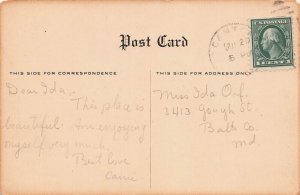 Post Card
THIS SIDE FOR CORRESPONDENCE
THIS SIDE FOR ADDRESS ONLY
Dear Ida:
This place is
beautiful. Am enjoying
myself very much.
Best love
Carrie
Miss Ida
3413 Gough St.
Balto Co.
Md.
1 CENT 1